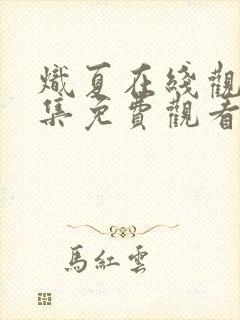 熾夏在綫觀
集免費觀看
馬紅雲